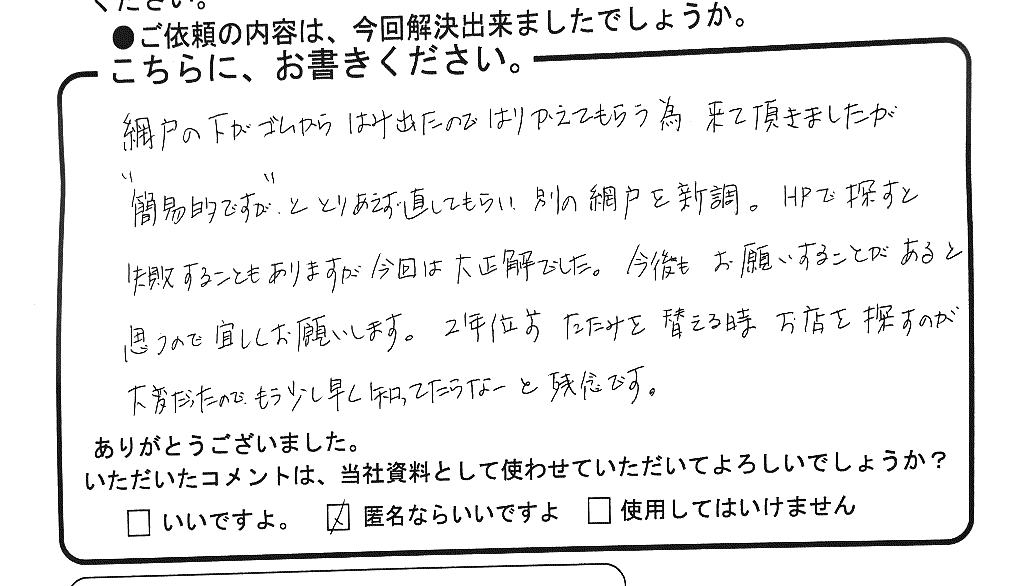 ください。
●ご依頼の内容は、今回解決出来ましたでしょうか。
こちらに、お書きください。
網戸の下がゴムから はみ出たので はりかえてもらう為 来て頂きましたが
"簡易的ですが"と とりあえず直してもらい 別の網戸を新調。 HPで探すと
失敗することもありますが今回は大正解でした。 今後も お願いすることがあると
思うので宜しくお願いします。 2年位前 たたみを 替える時 お店を探すのが
大変だったので、もう少し早く知ってたらなーと残念です。
ありがとうございました。
いただいたコメントは、当社資料として使わせていただいてよろしいでしょうか？
□ いいですよ。 ☑ 匿名ならいいですよ □ 使用してはいけません